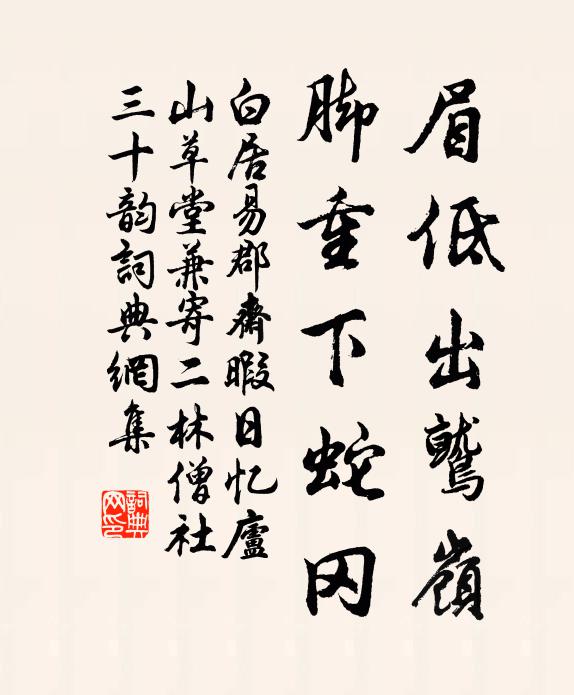 眉低出鹫嶺
脚重下蛇冈
白居易郡齋暇日忆廬
山草堂兼寄二林僧社
三十韵詞典網集
詞典网印